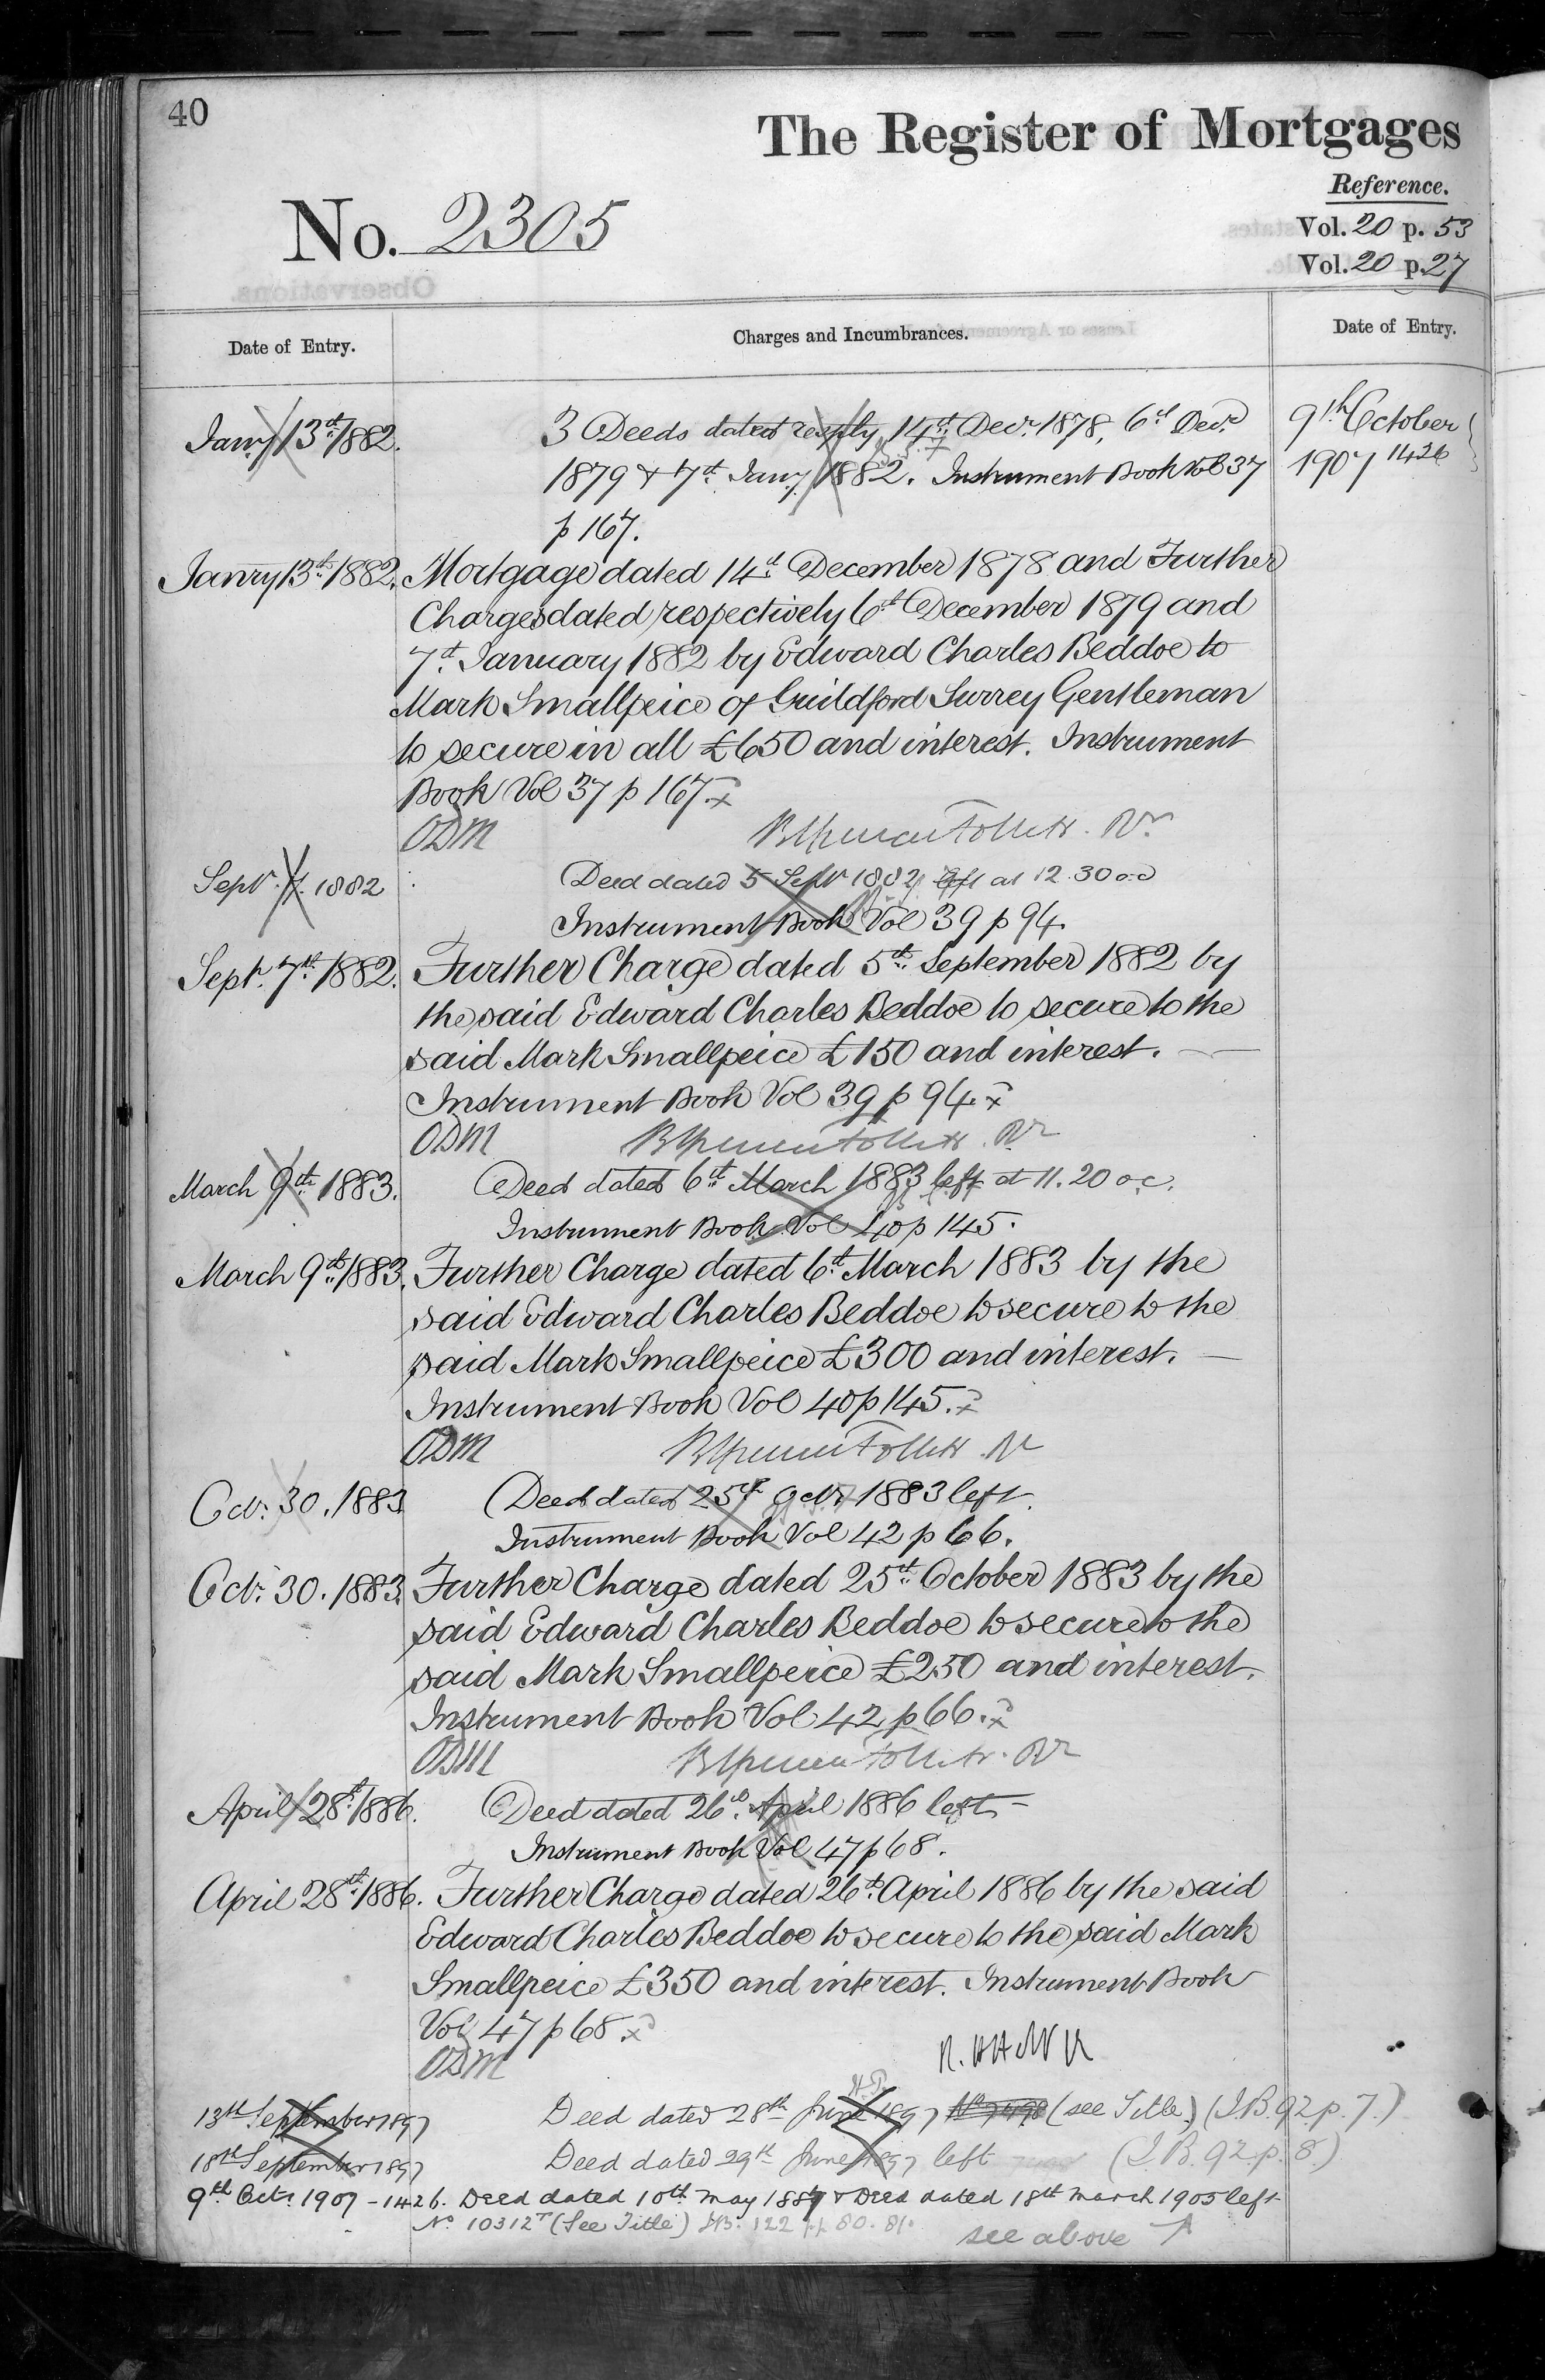 40
The Register of Mortgages
Reference.
No. 2305
Vol. 20 p. 53
Vol. 20 p. 27
Date of Entry.
Charges and Incumbrances.
Date of Entry.
Jany 13th 1882. 3 Deeds dated resply 14th Decr. 1878, 6th Decr. 9th October
1879 & 7th Jany 1882. Instrument Book Vol 37 1907 1426
p 167.
Janry 13th 1882. Mortgage dated 14th December 1878 and Further
Charges dated respectively 6th December 1879 and
7th January 1882 by Edward Charles Beddoe to
Mark Smallpeice of Guildford Surrey Gentleman
to secure in all £650 and interest. Instrument
Book Vol 37 p 167.
ODM
Septr. 7. 1882 Deed dated 5 Septr 1882 left at 12.30 oc
Instrument Book Vol 39 p 94.
Sept. 7th 1882. Further Charge dated 5th September 1882 by
the said Edward Charles Beddoe to secure to the
said Mark Smallpeice £150 and interest.
Instrument Book Vol 39 p 94.
ODM
March 9th 1883. Deed dated 6th March 1883 left at 11.20 oc.
Instrument Book Vol 40 p 145.
March 9th 1883. Further Charge dated 6th March 1883 by the
said Edward Charles Beddoe to secure to the
said Mark Smallpeice £300 and interest.
Instrument Book Vol 40 p 145.
ODM
Octr. 30. 1883 Deed dated 25th Octr 1883 left.
Instrument Book Vol 42 p 66.
Octr. 30. 1883. Further Charge dated 25th October 1883 by the
said Edward Charles Beddoe to secure to the
said Mark Smallpeice £250 and interest.
Instrument Book Vol 42 p 66.
ODM
April 28th 1886. Deed dated 26th April 1886 left
Instrument Book Vol 47 p 68.
April 28th 1886. Further Charge dated 26th April 1886 by the said
Edward Charles Beddoe to secure to the said Mark
Smallpeice £350 and interest. Instrument Book
Vol 47 p 68.
ODM
13th September 1897 Deed dated 28th June 1897 (see Title) (I.B. 92. p. 7.)
18th September 1897 Deed dated 29th June 1897 left (I.B. 92. p. 8.)
9th Octr. 1907 - 1426. Deed dated 10th May 1887 & Deed dated 18th March 1905 left
No 10312T (See Title) I.B. 122 pp 80. 81.
see above